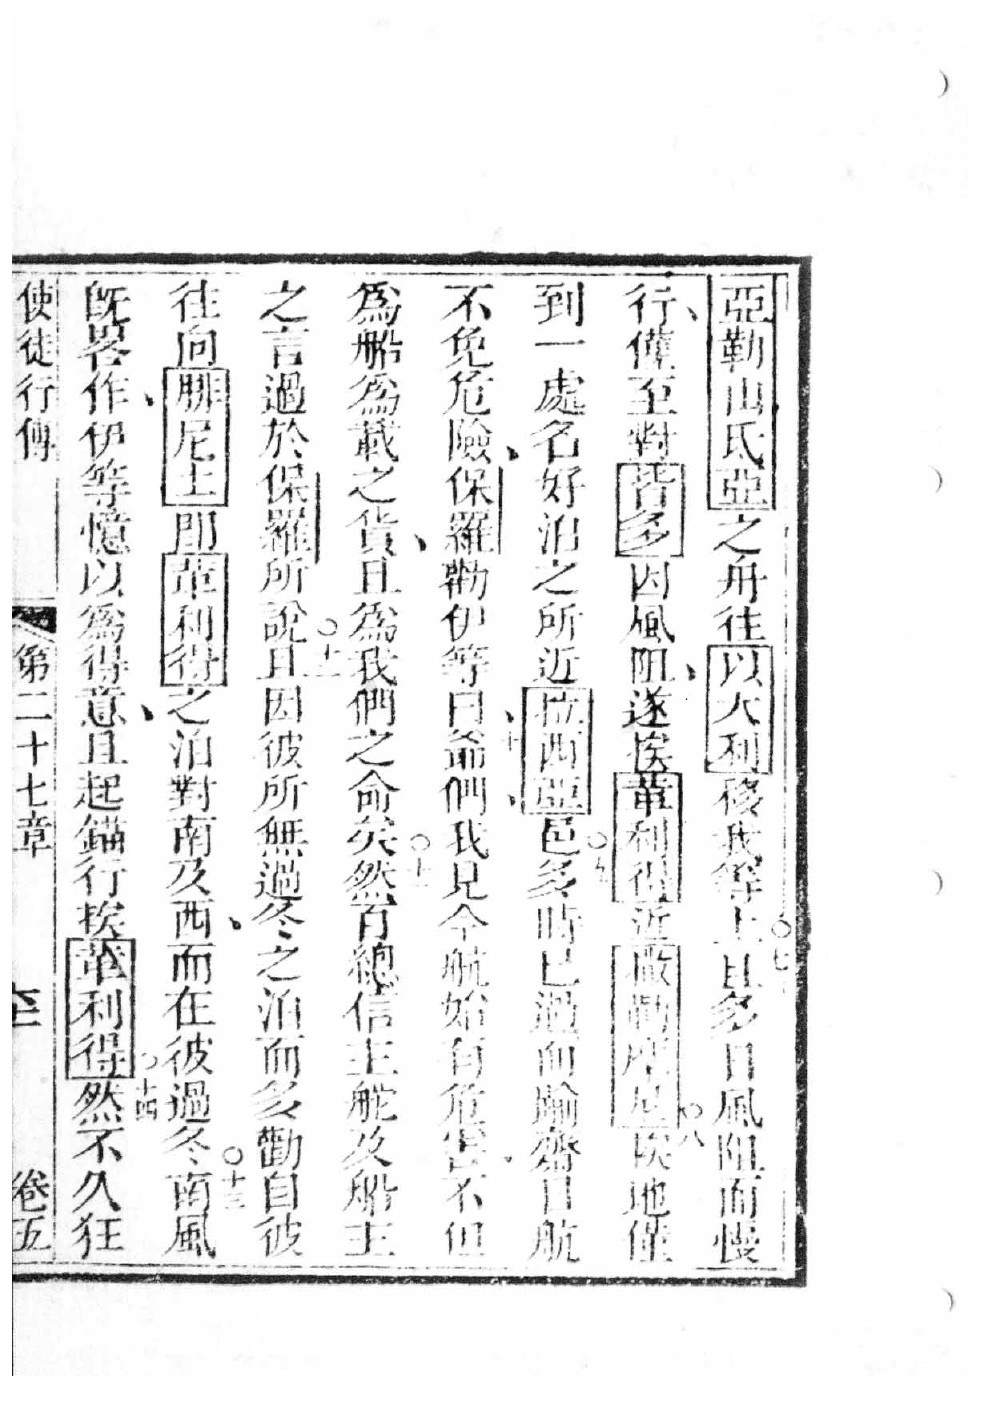 亞勒山氐亞之舟往以大利移我等上○七且多日風阻而慢
行、僅至對皆多因風阻、遂挨革利得近撒勒摩尼○八挨地僅
到一處名好泊之所近拉西亞邑○九多時已過而踰齋日航
不免危險、保羅勸伊等曰、○十爺們、我見今航始有危害、不但
為船為載之貨、且為我們之命矣○十一然百總信主舵及船主
之言過於保羅所說○十二且因彼所無過冬之泊而多勸自彼
往向腓尼士即革利得之泊對南及西、而在彼過冬○十三南風
旣畧作、伊等憶以為得意、且起錨行挨革利得○十四然不久狂
使徒行傳 第二十七章 卷五